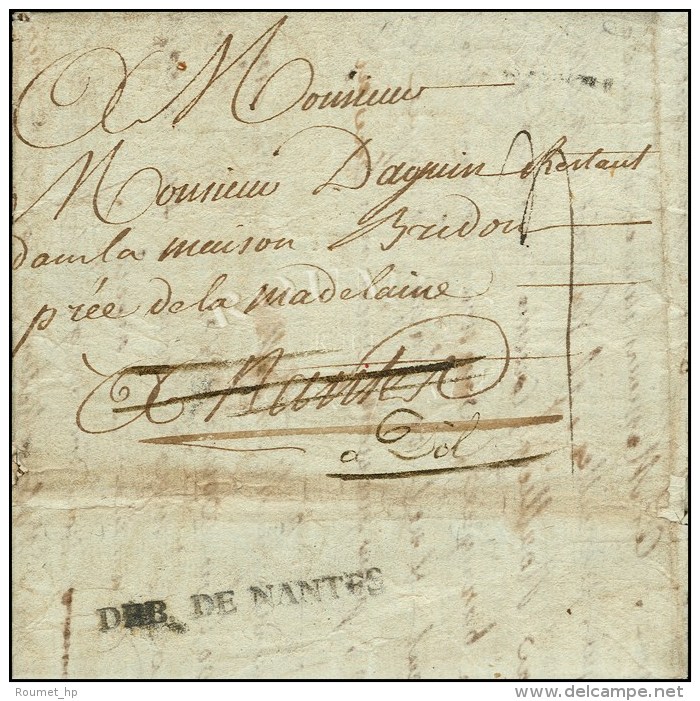 A Monsieur
Monsieur Daguin Restant
dans la maison Bridon
prée de la madelaine
A Nantes
a Dol
DEB. DE NANTES
Roumet_hp
www.delcampe.net